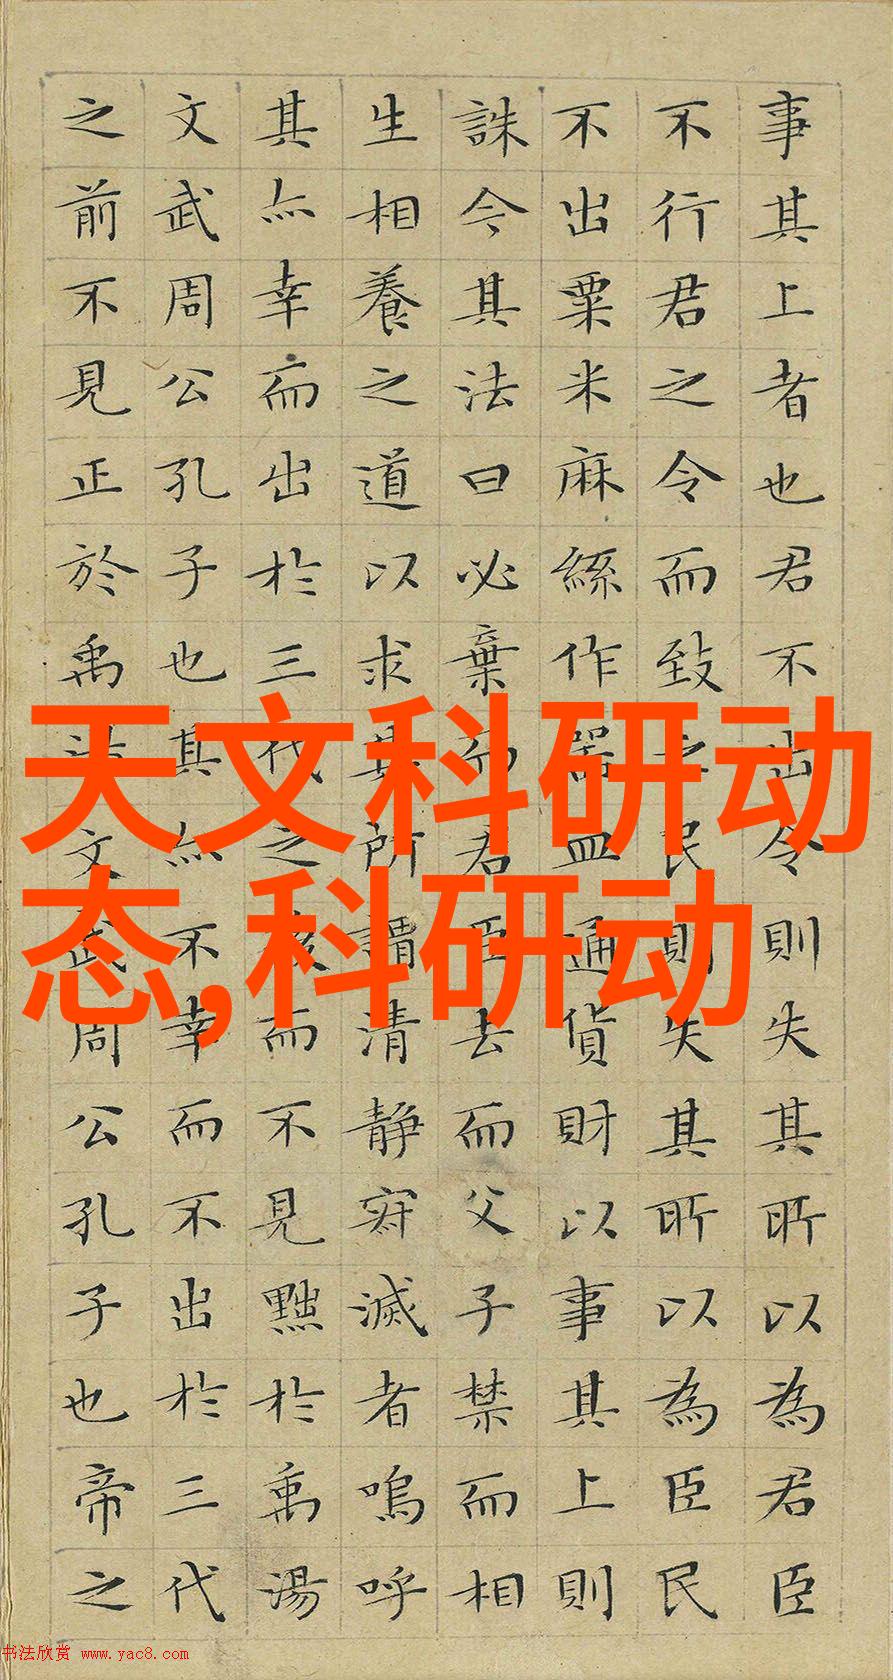 天文科研动
态,科研动
事其上者也君不出令則失其所以為君臣
不行君之令而致之民則失其所以為臣民
不出粟米麻絲作器皿通貨財以事其上則
誅今其法曰必棄而君臣去而父子禁而相
生相養之道以求其所謂清静寂滅者嗚呼
其亦幸而出於三代之後而不見黜於禹湯
文武周公孔子也其亦不幸而不出於三代
之前不見正於禹湯文武周公孔子也帝之
书法欣赏 www.yac8.com